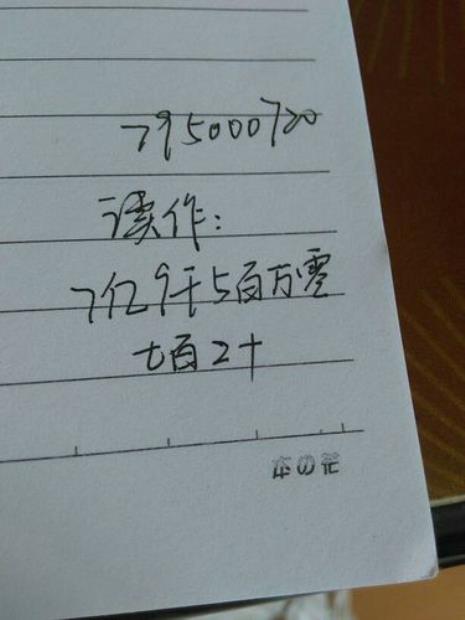 795000720
读作:
7亿9千5百万零
七百2十
本の花